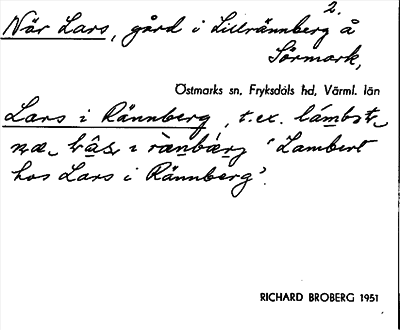 2.
När Lars, gård i Lillrännberg å
Sörmark,
Östmarks sn, Fryksdals hd, Värml. län
Lars i Rännberg, t.ex. lámbət
næ lạs i ræ̀nbærj 'Lambert
hos Lars i Rännberg'.
RICHARD BROBERG 1951